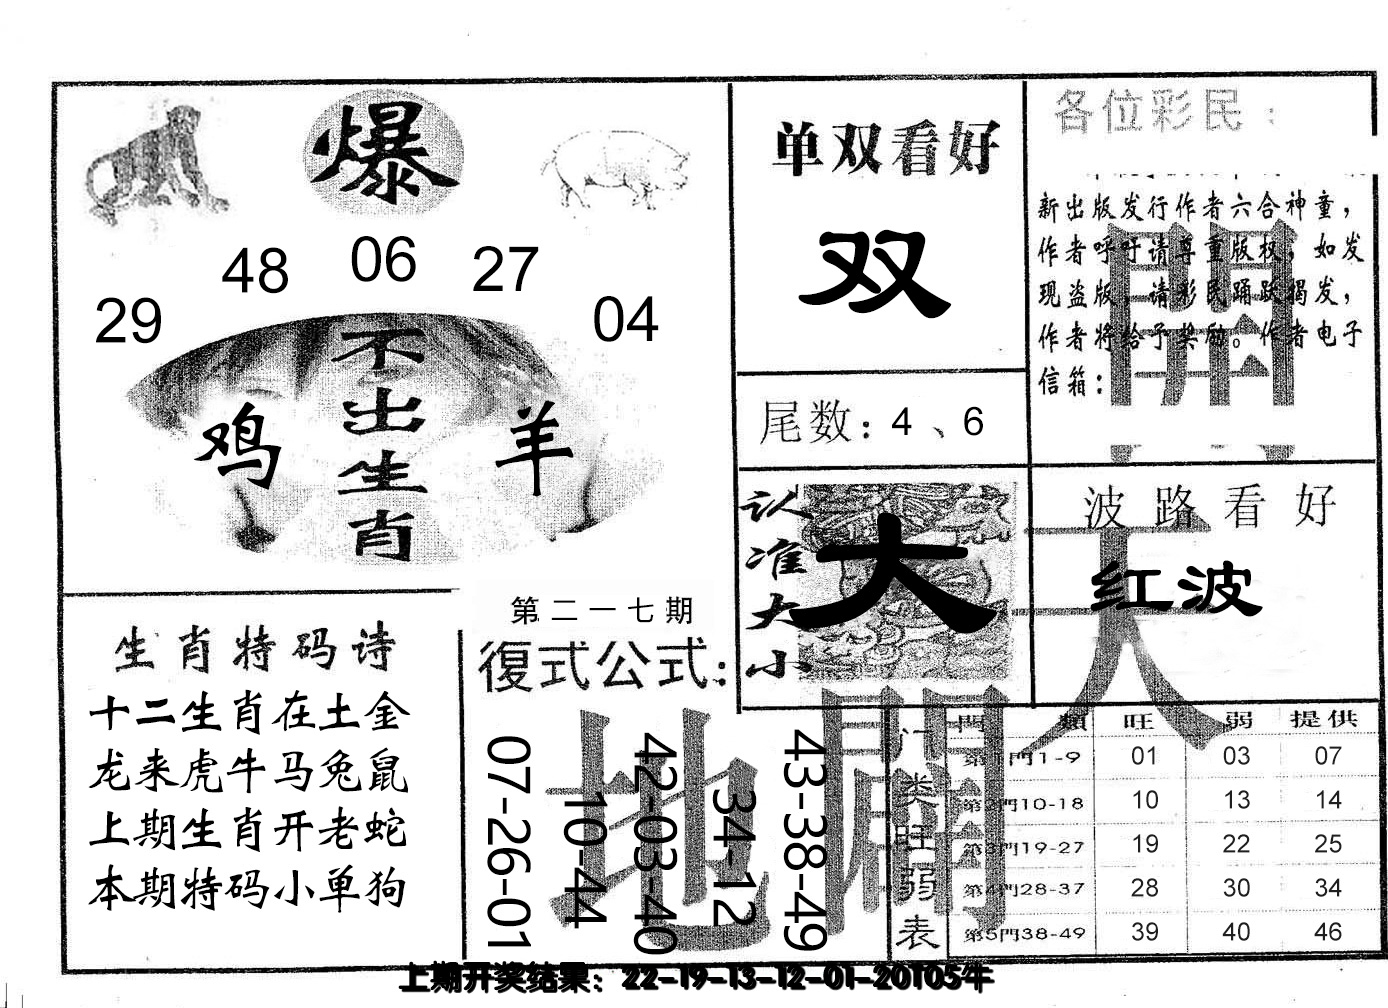 爆
29 48 06 27 04
不出生肖
鸡 羊
单双看好
双
尾数：4、6
各位彩民：
新出版发行作者六合神童，
作者呼吁请尊重版权，如发
现盗版，请彩民踊跃揭发，
作者将给予奖励。作者电子
信箱：
認准大小
大
波路看好
红波
天
地
開
生肖特码诗
十二生肖在土金
龙来虎牛马兔鼠
上期生肖开老蛇
本期特码小单狗
第二一七期
復式公式：
07-26-01
10-44
42-03-40
34-12
43-38-49
门类旺弱表
門類 旺 弱 提供
第1門1-9 01 03 07
第2門10-18 10 13 14
第3門19-27 19 22 25
第4門28-37 28 30 34
第5門38-49 39 40 46
上期开奖结果：22-19-13-12-01-20T05牛